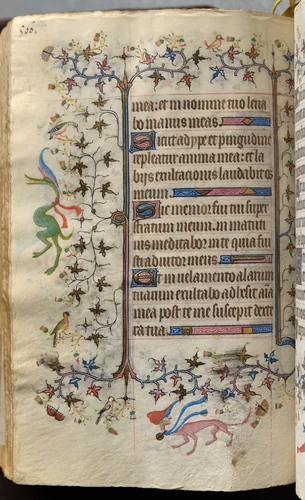 mea: et in nomine tuo leua
bo manus meas
Sicut adype et pinguidine
repleatur anima mea: et la
bijs exultacionis laudabit os
meum
Sic memor fui tui super
stratum meum. in matuti
nis meditabor in te quia fui
sti adiutor meus
Et in uelamento alarum
tuarum exultabo adhesit aīa
mea post te me suscepit dexte
ra tua